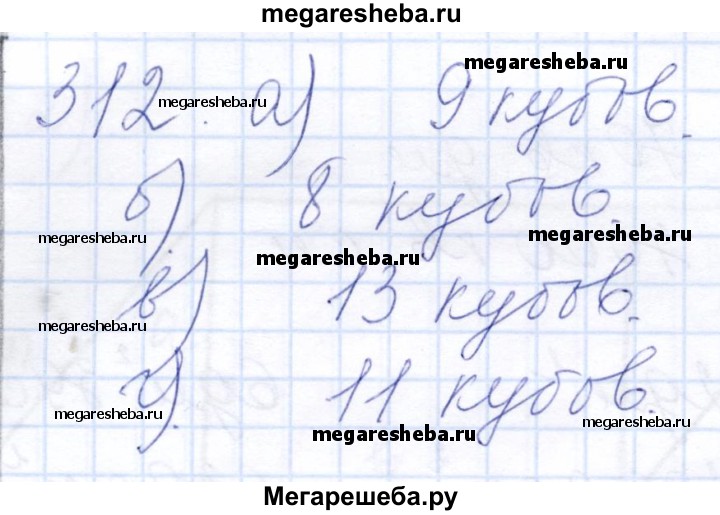 megaresheba.ru
megaresheba.ru
312. а) 9 кубов.
megaresheba.ru
б) 8 кубов.
megaresheba.ru
megaresheba.ru
megaresheba.ru
в) 13 кубов.
megaresheba.ru
г) 11 кубов.
megaresheba.ru
megaresheba.ru
megaresheba.ru
Мегарешеба.ру